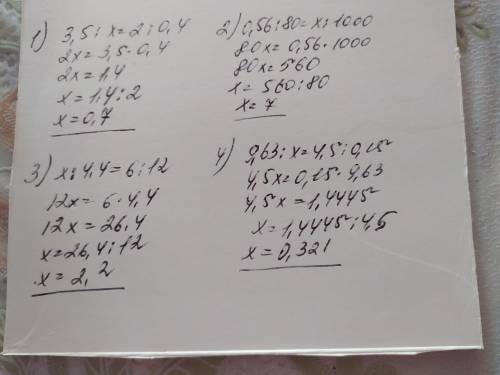 1) 3,5 : x = 2 : 0,4
2x = 3,5 · 0,4
2x = 1,4
x = 1,4 : 2
x = 0,7
2) 0,56 : 80 = x : 1000
80x = 0,56 · 1000
80x = 560
x = 560 : 80
x = 7
3) x : 4,4 = 6 : 12
12x = 6 · 4,4
12x = 26,4
x = 26,4 : 12
x = 2,2
4) 9,63 : x = 4,5 : 0,15
4,5x = 0,15 · 9,63
4,5x = 1,4445
x = 1,4445 : 4,5
x = 0,321